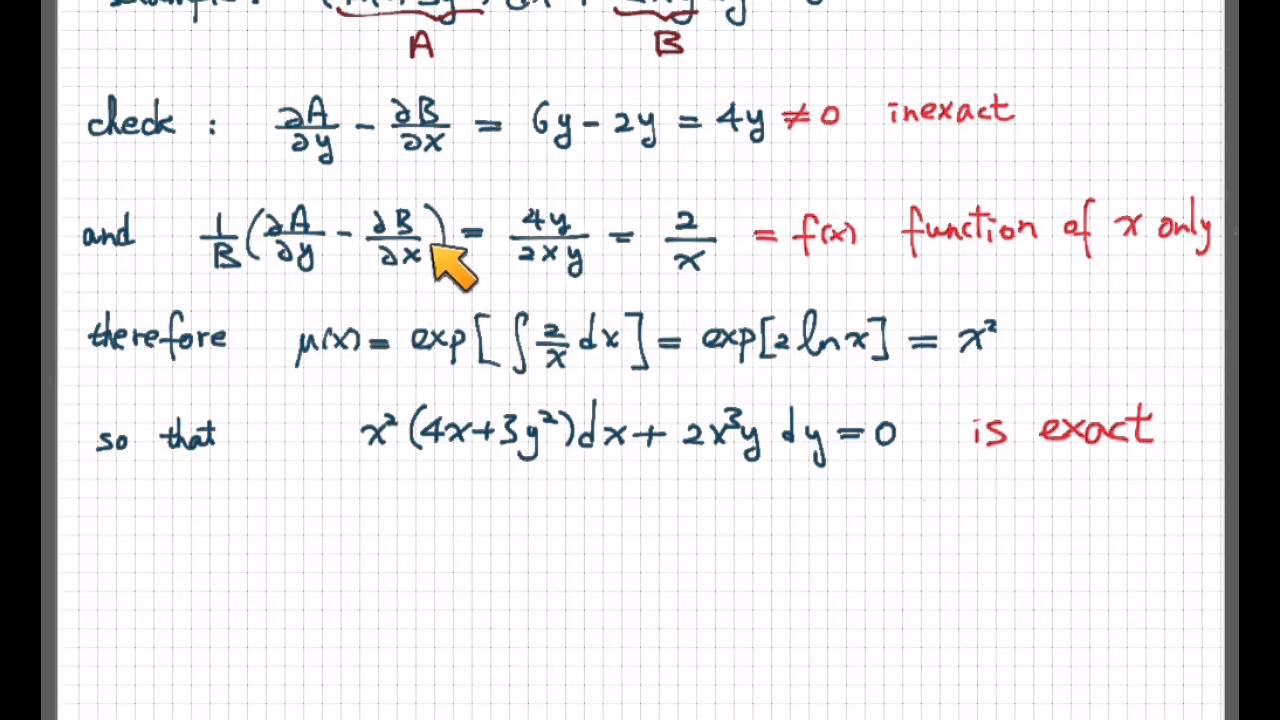 A B
check : ∂A/∂y - ∂B/∂x = 6y - 2y = 4y ≠ 0 inexact
and 1/B (∂A/∂y - ∂B/∂x) = 4y/2xy = 2/x = f(x) function of x only
therefore μ(x) = exp[∫ 2/x dx] = exp[2 ln x] = x²
so that x² (4x+3y²)dx + 2x³y dy = 0 is exact